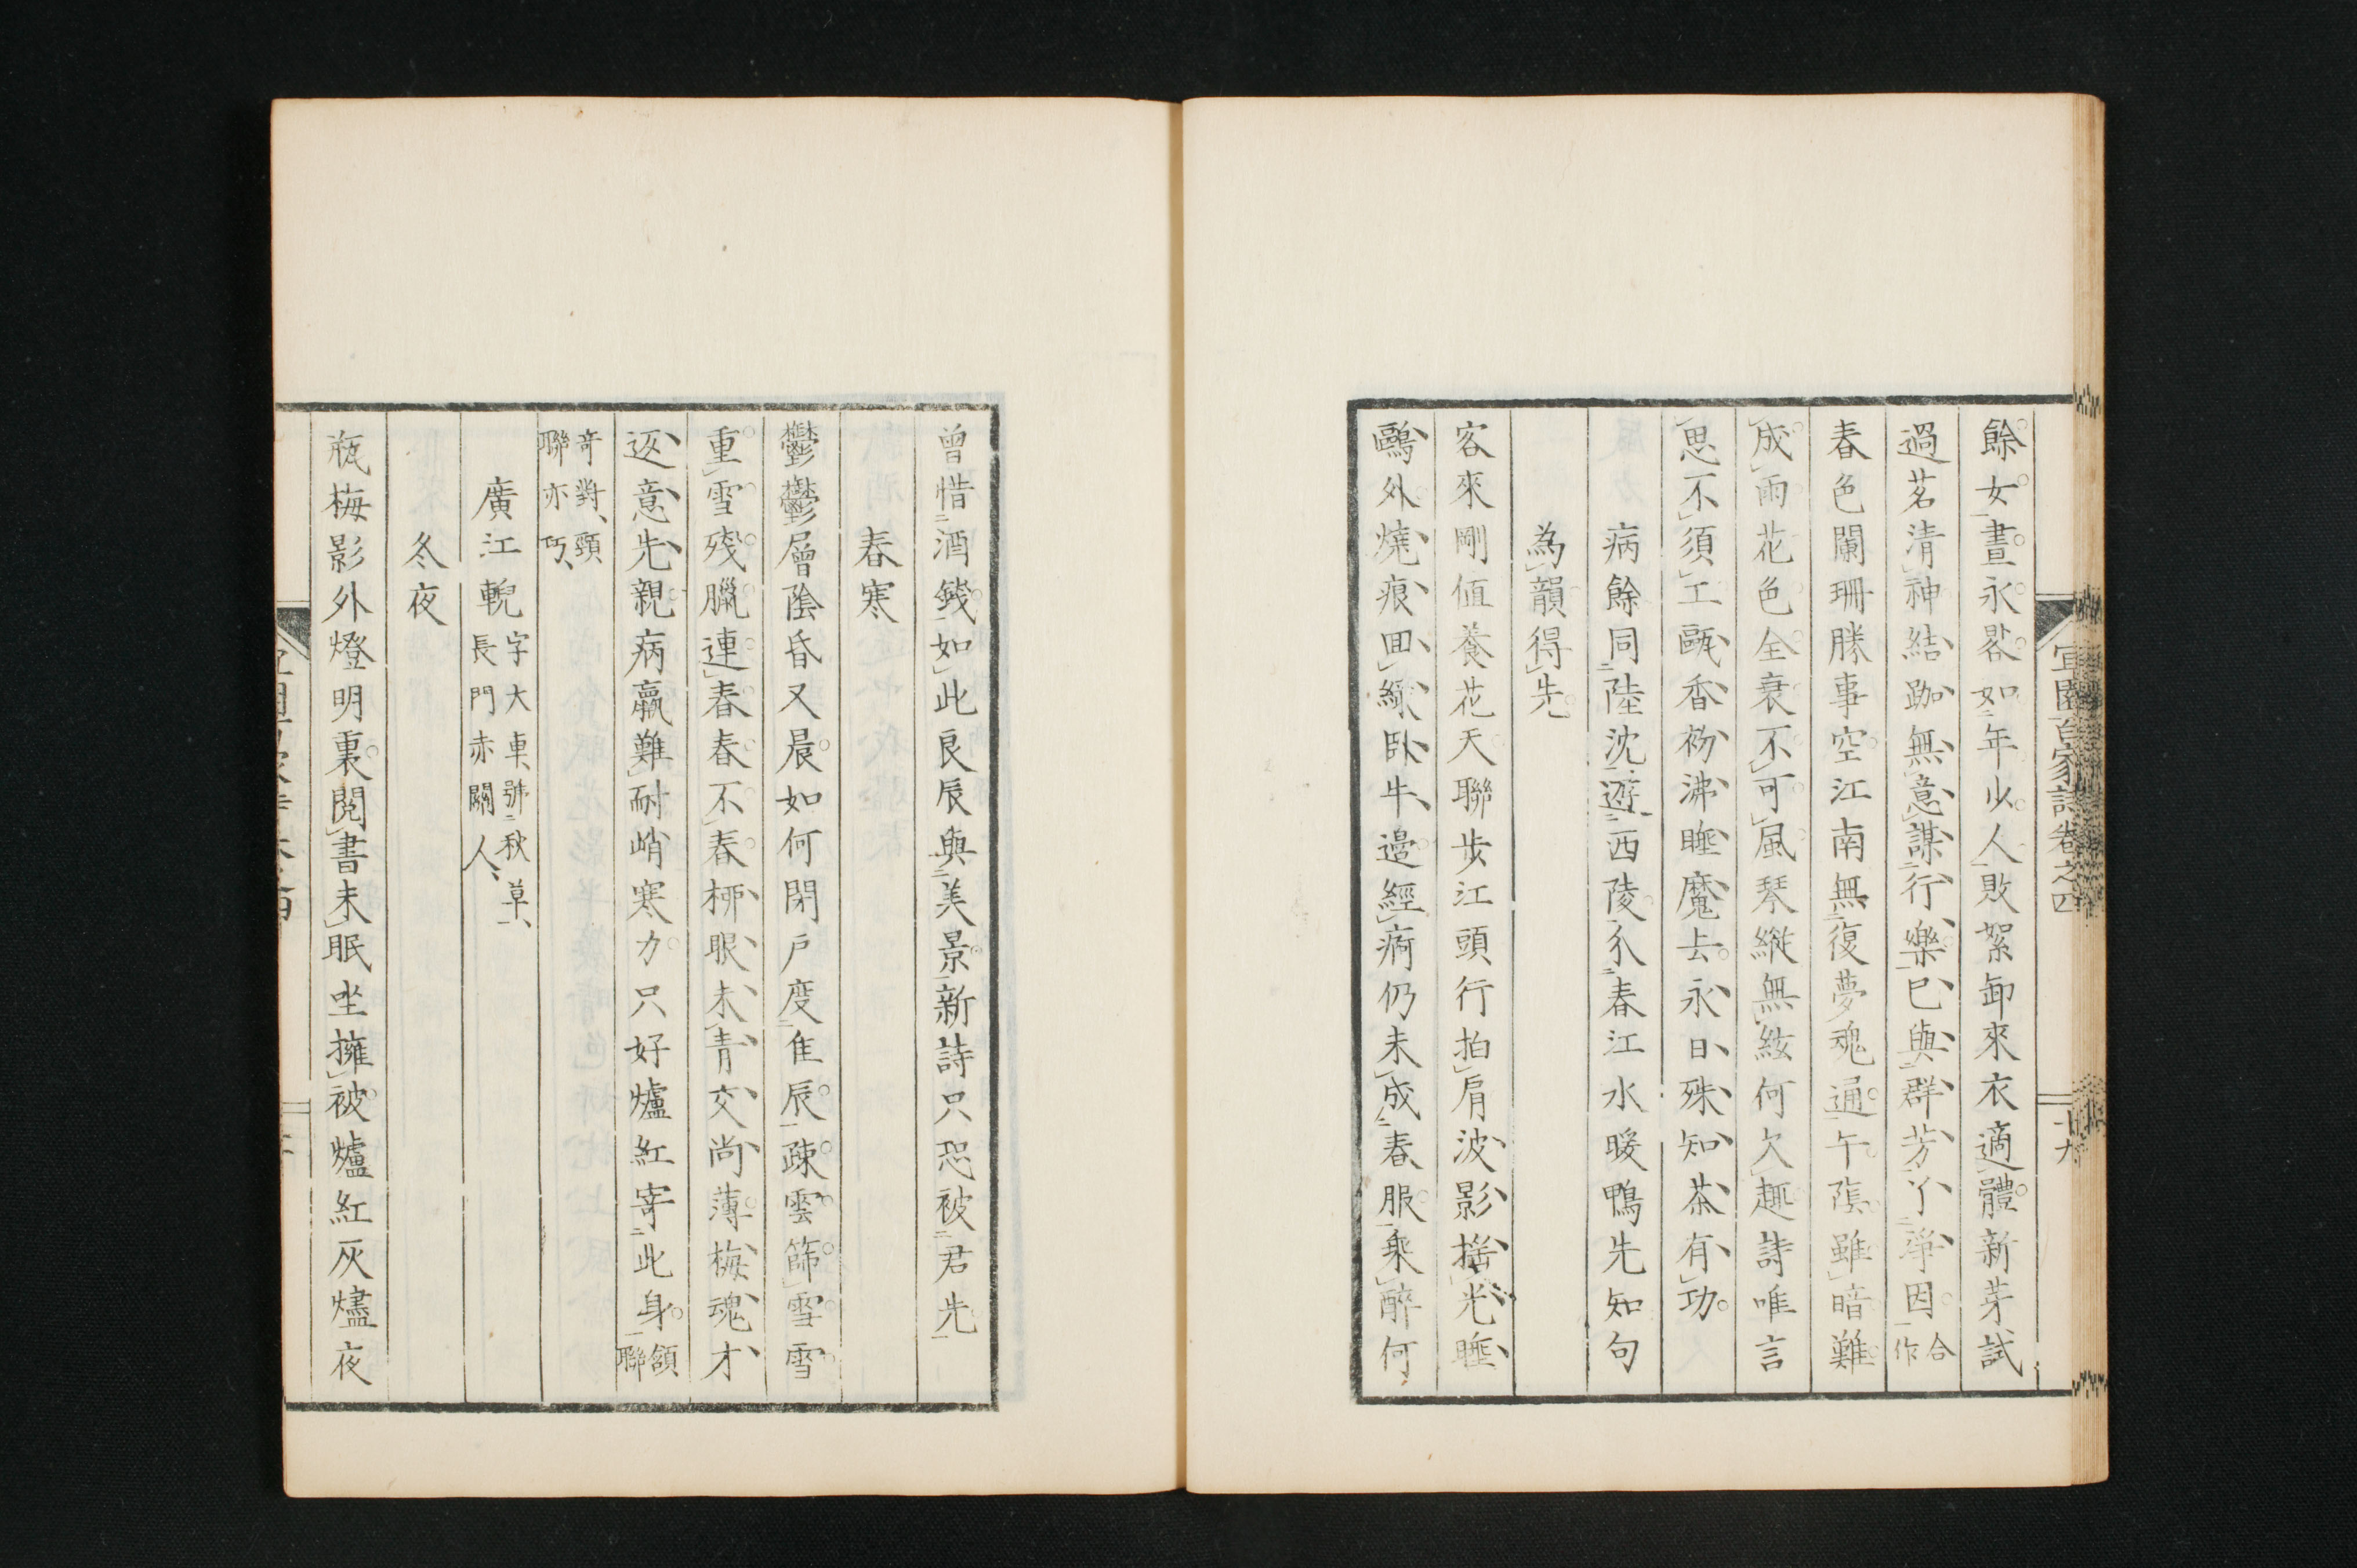 宜園百家詩卷之四
十九
餘女晝永畧如年少人敗絮卸來衣適體新芽試
過茗清神結跏無意謀行樂已與群芳了淨因合作
春色闌珊勝事空江南無復夢魂通午陰雖暗難
成雨花色全衰不可風琴縱無絃何欠趣詩唯言
思不須工甌香初沸睡魔去永日殊知茶有功
病餘同陸沈遊西陵分春江水暖鴨先知句
為韻得先
客來剛値養花天聯步江頭行拍肩波影搖光睡
鷗外燒痕回綠臥牛邊經痾仍未成春服乘醉何
曾惜酒錢如此良辰與美景新詩只恐被君先
春寒
鬱鬱層陰昏又晨如何閉戶度佳辰疎雲篩雪雪
重雪殘臘連春春不春柳眼未青交尚薄梅魂才
返意先親病羸難耐峭寒力只好爐紅寄此身頷聯
奇對頸
聯亦巧
廣江輗字大車號秋草
長門赤關人
冬夜
瓶梅影外燈明裏閱書未眠坐擁被爐紅灰燼夜